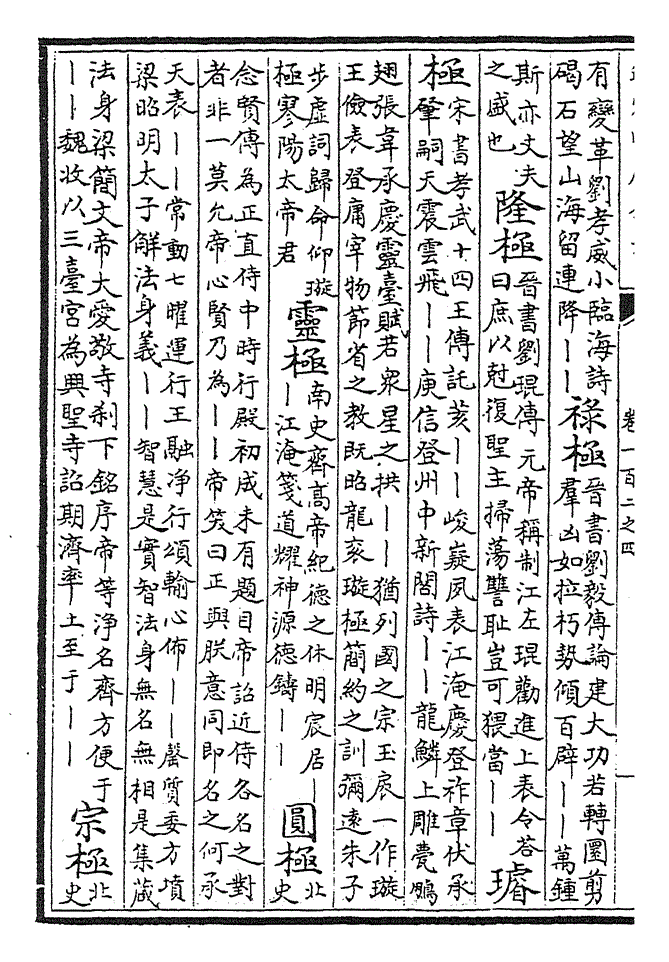 卷一百二之四
有變革劉孝威小臨海詩
碣石望山海留連降丨丨
祿極
晉書劉毅傳論建大功若轉圜剪
羣凶如拉朽勢傾百辟丨丨萬鍾
斯亦丈夫
之盛也
隆極
晉書劉琨傳元帝稱制江左琨勸進上表令荅
曰庶以尅復聖主掃蕩讐耻豈可猥當丨丨
璿
極
宋書孝武十四王傳託荄丨丨峻嶷夙表江淹慶登祚章伏承
肇嗣天震雲飛丨丨庾信登州中新閣詩丨丨龍鱗上雕甍鵬
翅張韋承慶靈臺賦若衆星之拱丨丨猶列國之宗玉扆一作璇
王儉表登庸宰物節省之教既昭龍衮璇極簡約之訓彌遠朱子
步虛詞歸命仰璇
極寥陽太帝君
靈極
南史齊高帝紀德之休明宸居丨
丨江淹箋道耀神源德鑄丨丨
圓極
北
史
念賢傳為正直侍中時行殿初成未有題目帝詔近侍各名之對
者非一莫允帝心賢乃為丨丨帝笑曰正與朕意同即名之何承
天表丨丨常動七曜運行王融净行頌輸心佈丨丨罄質委方墳
梁昭明太子解法身義丨丨智慧是實智法身無名無相是集藏
法身梁簡文帝大愛敬寺刹下銘序帝等浄名齊方便于
丨丨魏收以三臺宮為興聖寺詔期濟率土至于丨丨
宗極
北
史